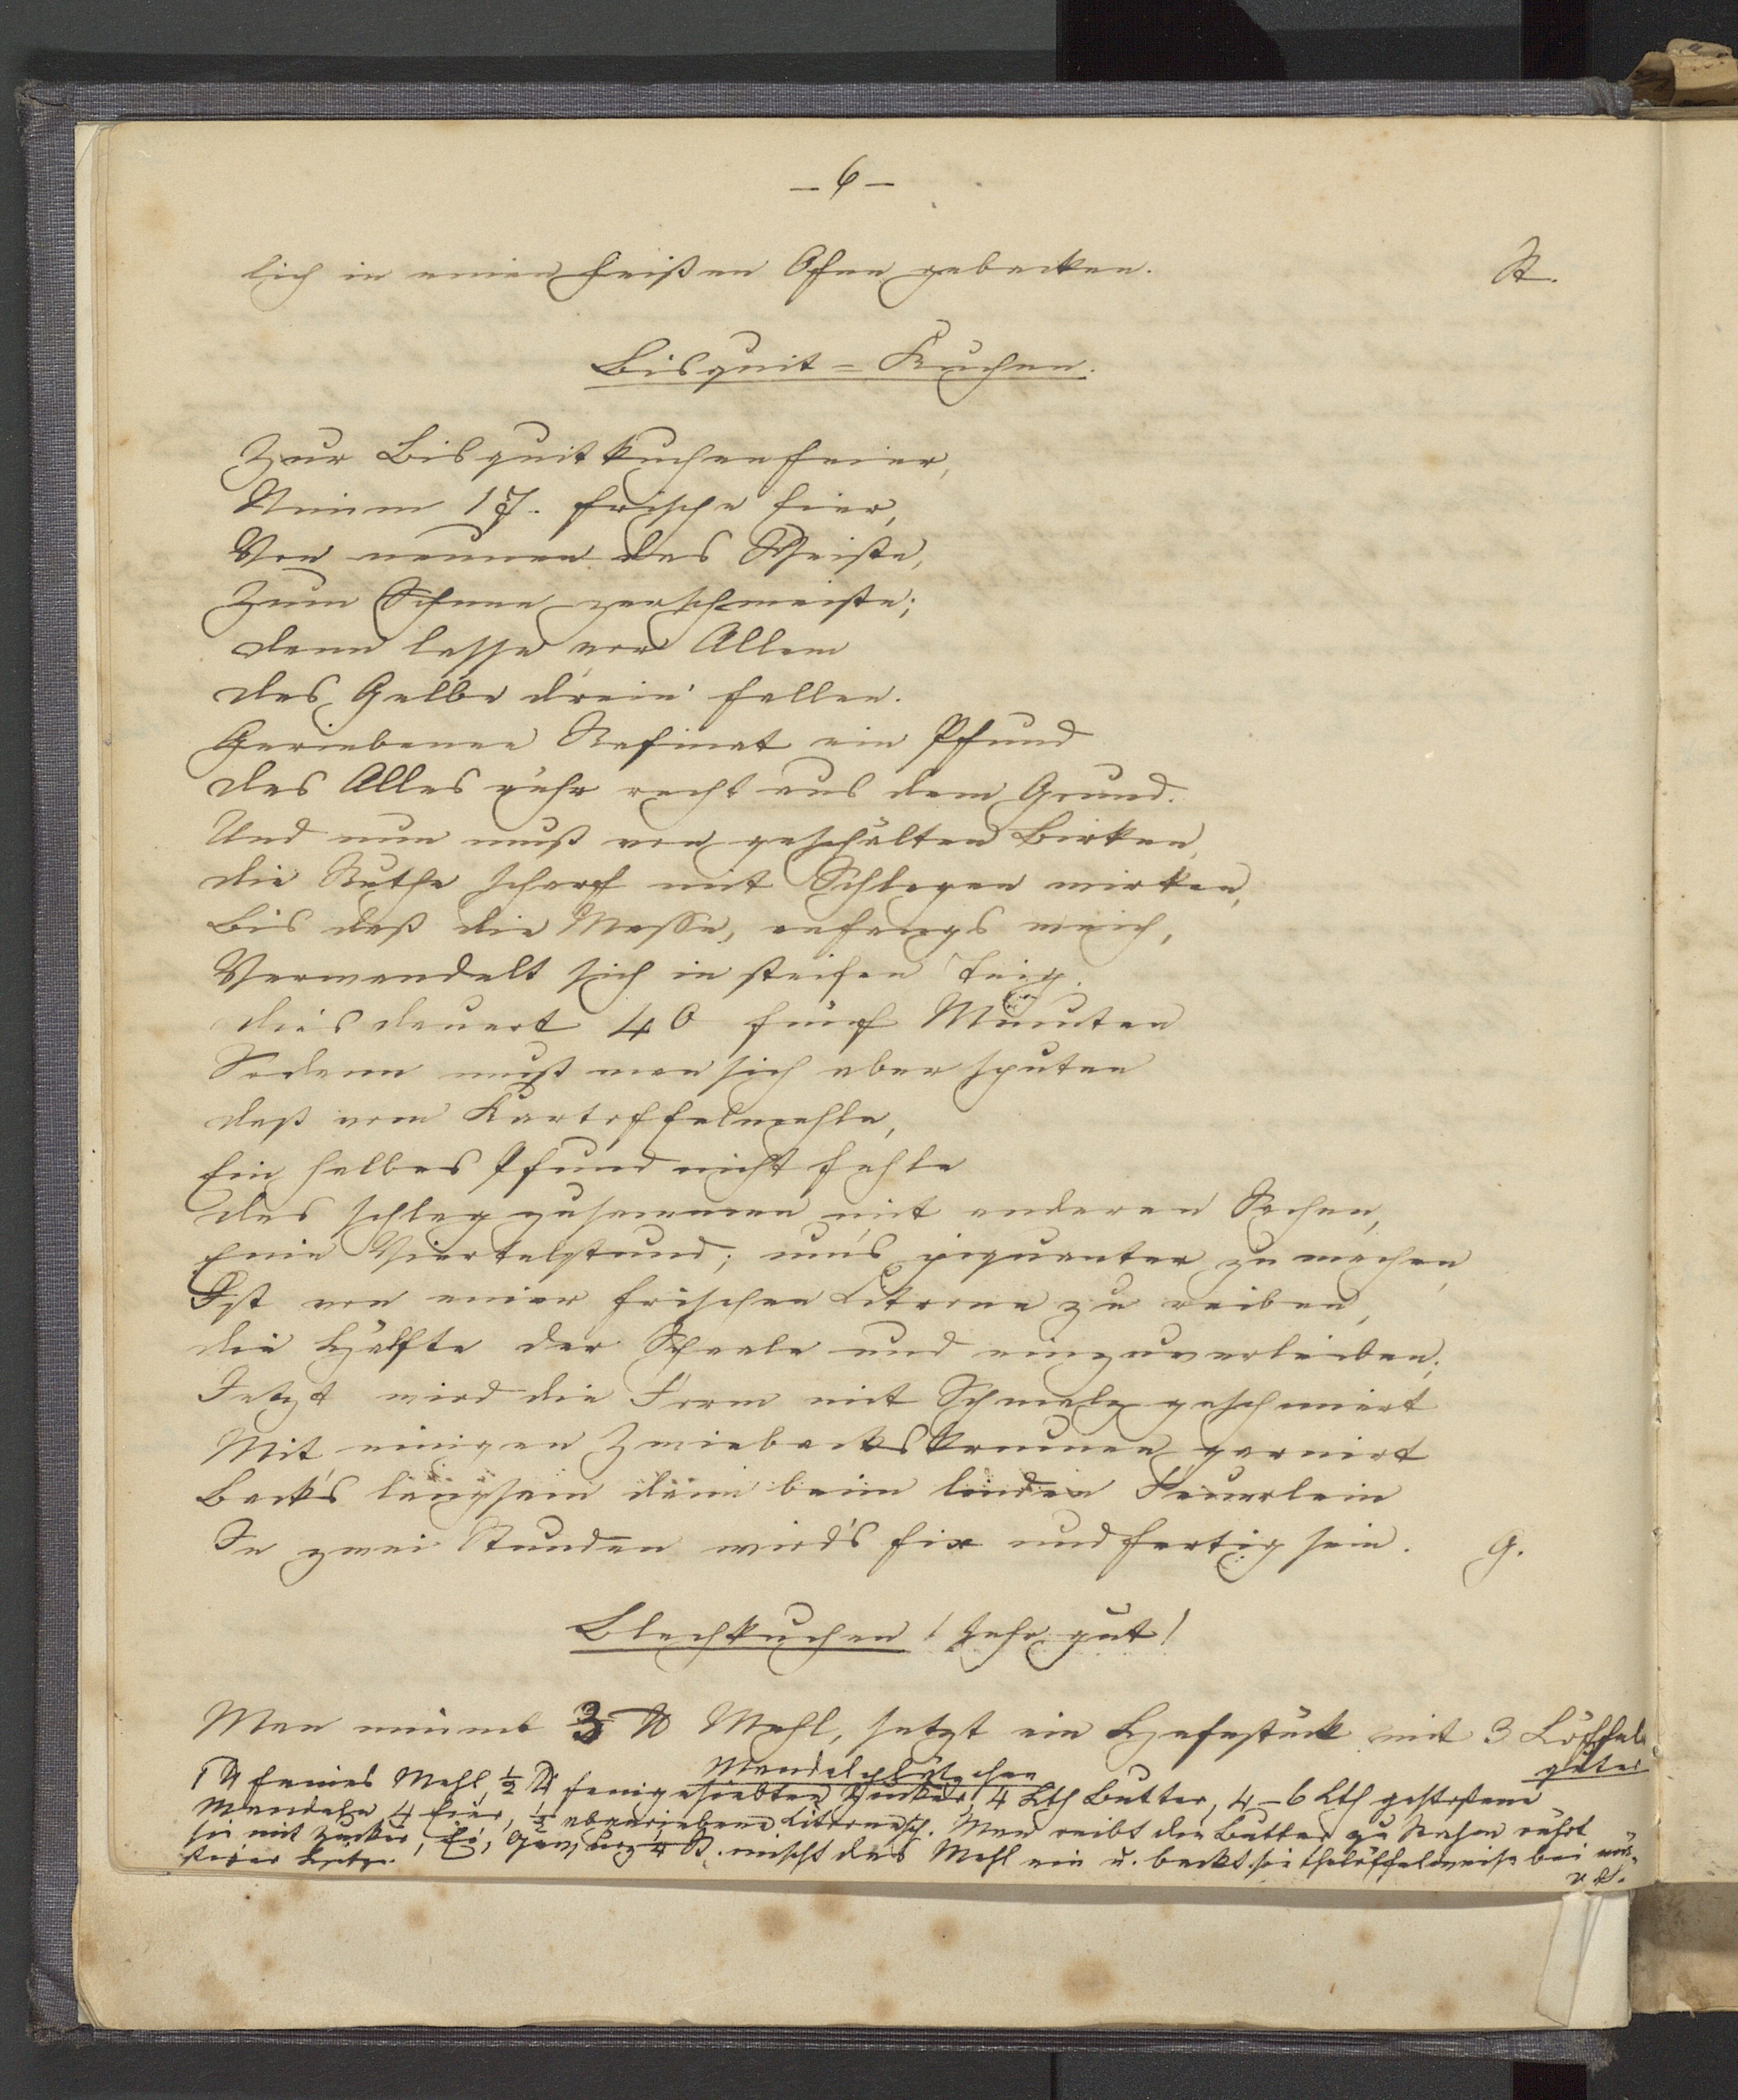 — 6 —
lich in einen heißen Ofen gebacken. St.
Bisquit = Kuchen.
Zur Bisquitkuchenfeier,
Nimm 17. frische Eier,
Von neunen das Weiße,
Zum Schnee zerschmeiße;
dann lasse vor Allem
das Gelbe drein' fallen.
Geriebenen Rafinat ein Pfund
das Alles rühr recht aus dem Grund.
Und nun muß von geschälten Birken,
die Ruthe scharf mit Schlagen wirken,
Bis daß die Masse, anfangs weich,
Verwandelt sich in steifen Teig.
dies dauert 40 fünf Minuten
Sodann muß man sich aber sputen
daß vom Kartoffelmehle,
Ein halbes Pfund nicht fehle
das schlag zusammen mit anderen Sachen,
Eine Viertelstund; um's piquanter zu machen,
Ist von einer frischen Citrone zu reiben,
die Hälfte der Schaale und einzuverleiben;
Jetzt wird die Form mit Schmalz geschmiert
Mit einigen Zwiebackskrumen garnirt
Back's langsam dann beim linden Feuerlein
In zwei Stunden wird's fix und fertig sein. G.
Blechkuchen! Sehr gut!
Man nimmt 3 ℔ Mehl, setzt ein Hefestück mit 3 Löffel
guter
Mandelplätzchen
1 ℔ feines Mehl, ½ ℔ feingesiebten Zucker, 4 Lth Butter, 4–6 Lth gestoßene
Mandeln, 4 Eier, ½ abgeriebene Citronensch. Man reibt die Butter zu Rahm rührt
sie mit Zucker, Ei, mischt das Mehl ein u. backt sie theelöffelweise bei mäs-
siger Hitze.